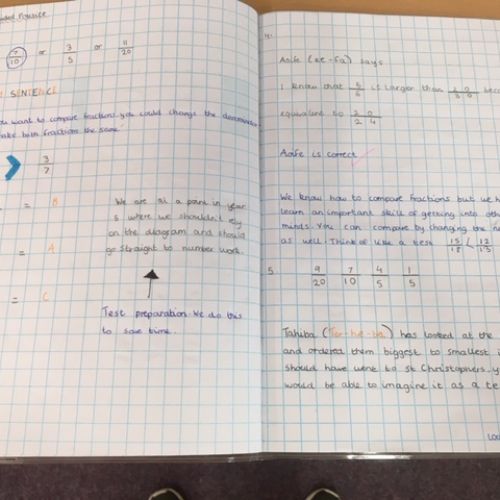 7/10 or 3/5 or 11/20
SENTENCE
you want to compare fractions you could change the
make both fractions the same
3/7
= B
= A
= C
We are at a point in year
5 where we shouldn't rely
on the diagram and should
go straight to number work.
Test preparation. We do this
to save time.
Aoife (ee-fa) says
I know that 5/6 is larger than
equivalent to 20/24
Aoife is correct
We know how to compare fractions but we h
learn an important skill of getting into oth
minds. You can compare by changing the n
as well. Think of like a test 15/18 < 12/13
5. 9/20 7/10 4/5 1/5
Tahiba (Ta-he-ba) has looked at the
and ordered them biggest to smallest i
should have went to St Christophers, y
would be able to imagine it as a te